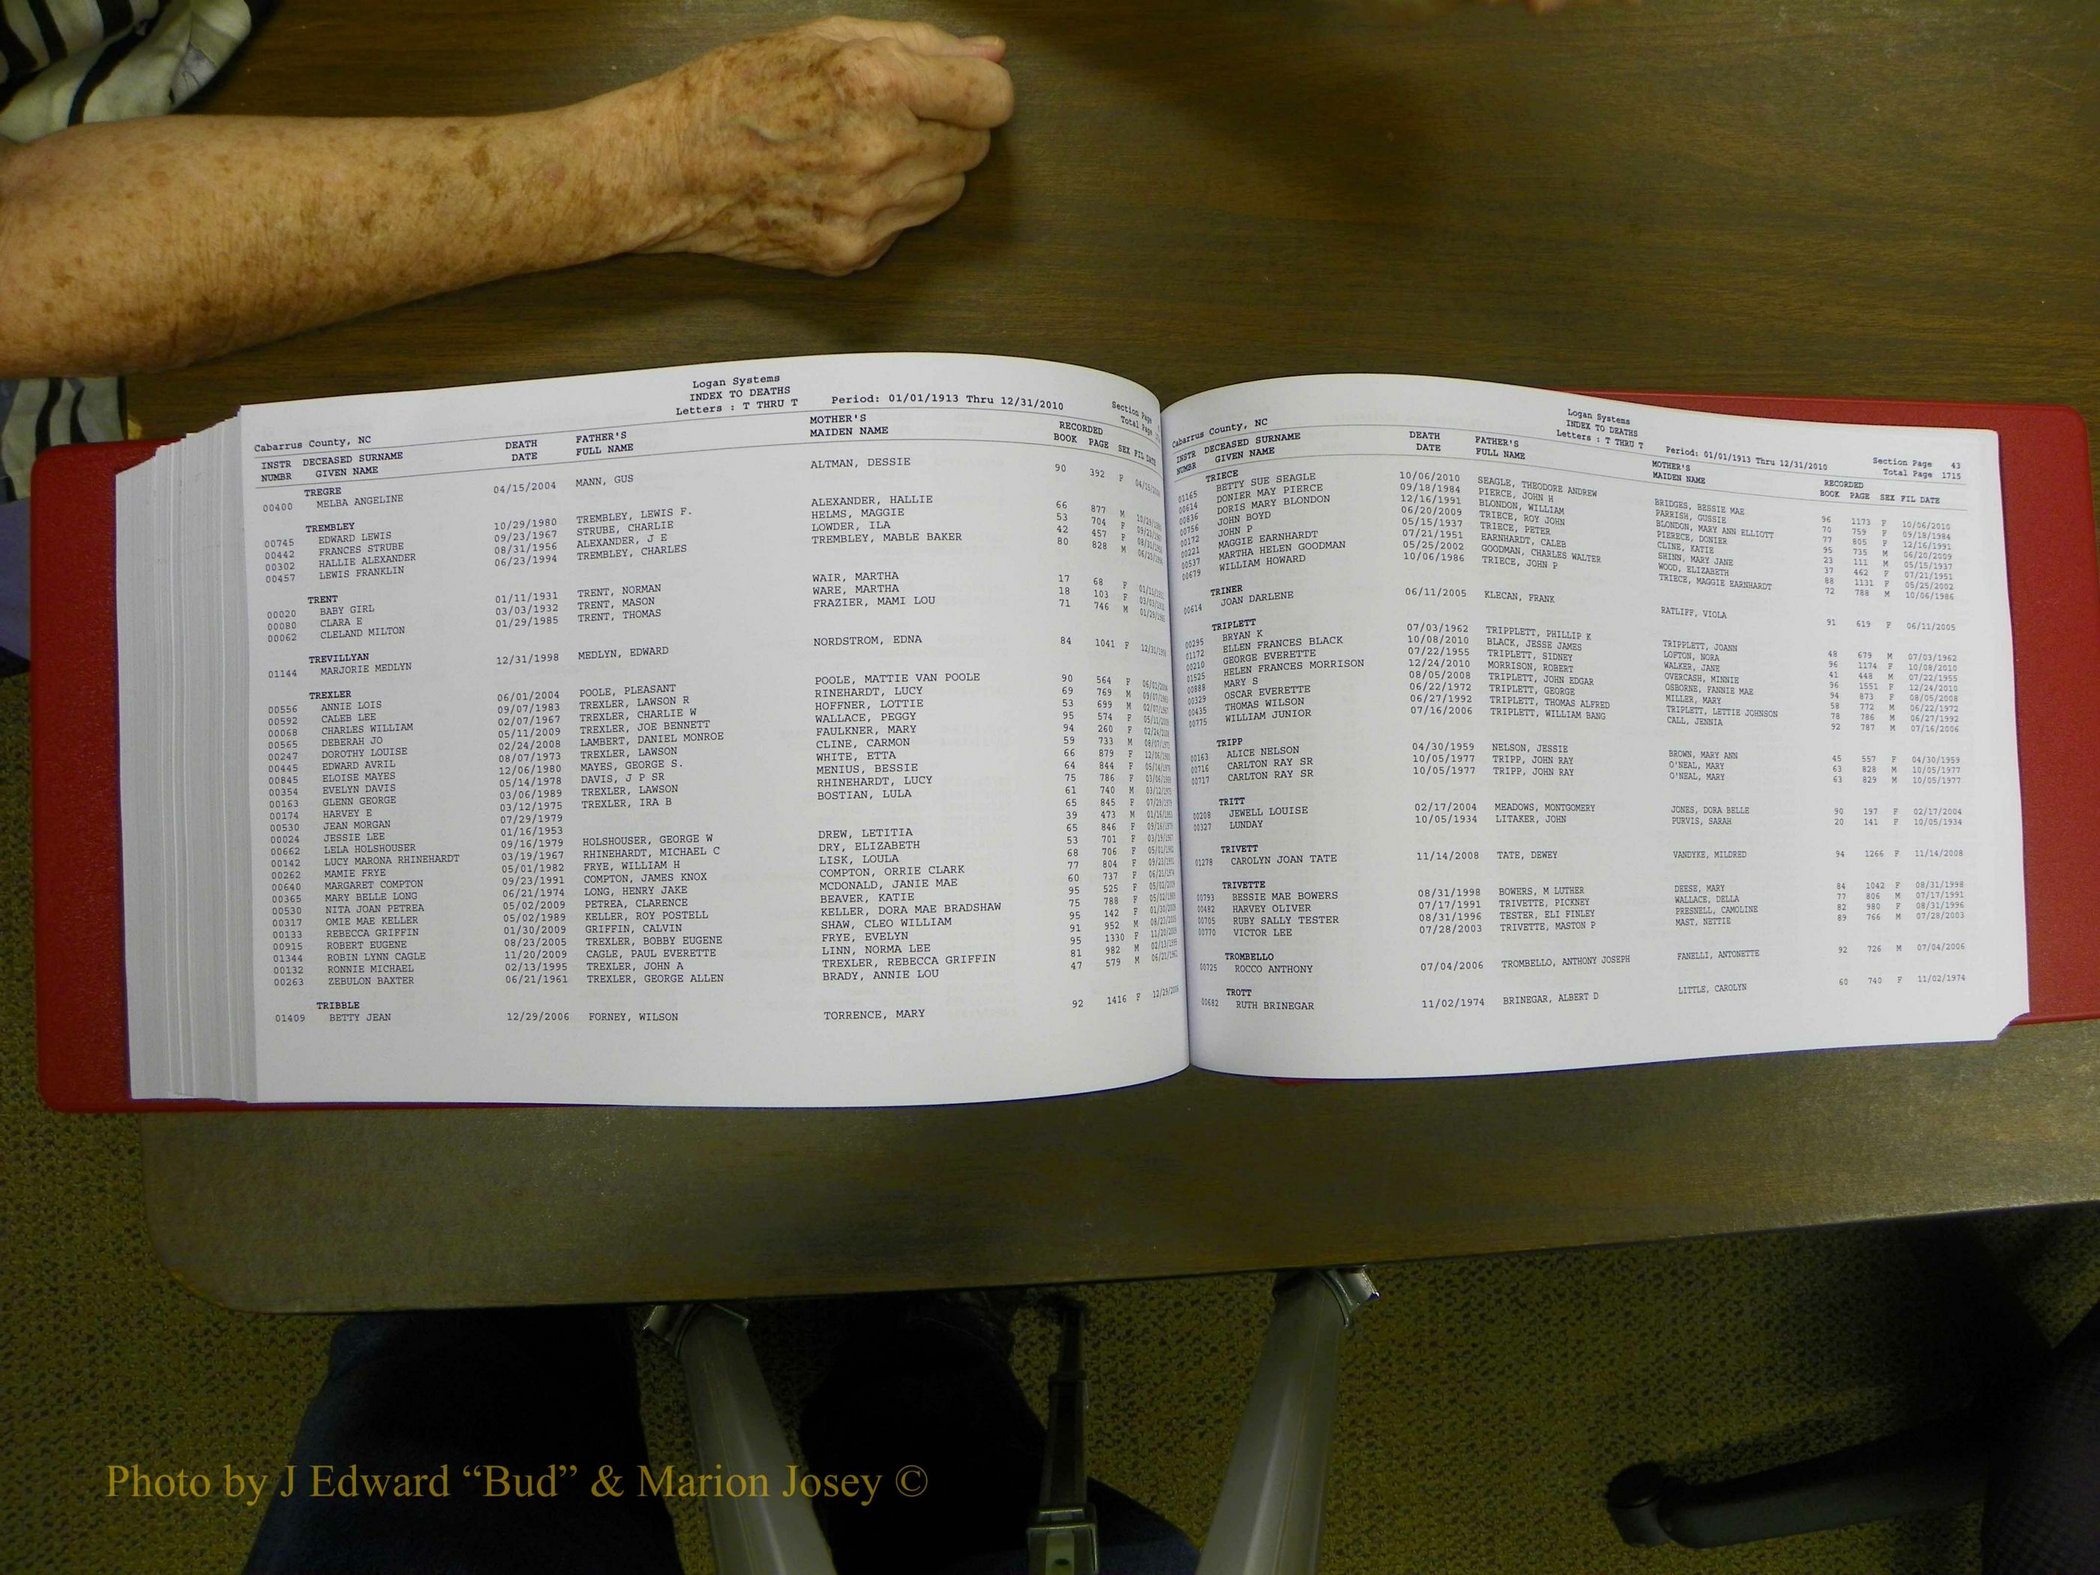 Logan Systems
INDEX TO DEATHS
Letters : T THRU T Period: 01/01/1913 Thru 12/31/2010
Section Page
Total Page
Cabarrus County, NC
INSTR NUMBR DECEASED SURNAME GIVEN NAME DEATH DATE FATHER'S FULL NAME MOTHER'S MAIDEN NAME RECORDED BOOK PAGE SEX FIL DATE
TREGRE
00400 MELBA ANGELINE 04/15/2004 MANN, GUS ALTMAN, DESSIE 90 392 F 04/15/2004
TREMBLEY
00745 EDWARD LEWIS 10/29/1980 TREMBLEY, LEWIS F. ALEXANDER, HALLIE 66 877 M 10/29/1980
00442 FRANCES STRUBE 09/23/1967 STRUBE, CHARLIE HELMS, MAGGIE 53 704 F 09/23/1967
00302 HALLIE ALEXANDER 08/31/1956 ALEXANDER, J E LOWDER, ILA 42 457 F 08/31/1956
00457 LEWIS FRANKLIN 06/23/1994 TREMBLEY, CHARLES TREMBLEY, MABLE BAKER 80 828 M 06/23/1994
TRENT
00020 BABY GIRL 01/11/1931 TRENT, NORMAN WAIR, MARTHA 17 68 F 01/11/1931
00080 CLARA E 03/03/1932 TRENT, MASON WARE, MARTHA 18 103 F 03/03/1932
00062 CLELAND MILTON 01/29/1985 TRENT, THOMAS FRAZIER, MAMI LOU 71 746 M 01/29/1985
TREVILLYAN
01144 MARJORIE MEDLYN 12/31/1998 MEDLYN, EDWARD NORDSTROM, EDNA 84 1041 F 12/31/1998
TREXLER
00556 ANNIE LOIS 06/01/2004 POOLE, PLEASANT POOLE, MATTIE VAN POOLE 90 564 F 06/01/2004
00592 CALEB LEE 09/07/1983 TREXLER, LAWSON R RINEHARDT, LUCY 69 769 M 09/07/1983
00068 CHARLES WILLIAM 02/07/1967 TREXLER, CHARLIE W HOFFNER, LOTTIE 53 699 M 02/07/1967
00565 DEBERAH JO 05/11/2009 TREXLER, JOE BENNETT WALLACE, PEGGY 95 574 F 05/11/2009
00247 DOROTHY LOUISE 02/24/2008 LAMBERT, DANIEL MONROE FAULKNER, MARY 94 260 F 02/24/2008
00445 EDWARD AVRIL 08/07/1973 TREXLER, LAWSON CLINE, CARMON 59 733 M 08/07/1973
00845 ELOISE MAYES 12/06/1980 MAYES, GEORGE S. WHITE, ETTA 66 879 F 12/06/1980
00354 EVELYN DAVIS 05/14/1978 DAVIS, J P SR MENIUS, BESSIE 64 844 F 05/14/1978
00163 GLENN GEORGE 03/06/1989 TREXLER, LAWSON RHINEHARDT, LUCY 75 786 F 03/06/1989
00174 HARVEY E 03/12/1975 TREXLER, IRA B BOSTIAN, LULA 61 740 M 03/12/1975
00530 JEAN MORGAN 07/29/1979 65 845 F 07/29/1979
00024 JESSIE LEE 01/16/1953 39 473 M 01/16/1953
00662 LELA HOLSHOUSER 09/16/1979 HOLSHOUSER, GEORGE W DREW, LETITIA 65 846 F 09/16/1979
00142 LUCY MARONA RHINEHARDT 03/19/1967 RHINEHARDT, MICHAEL C DRY, ELIZABETH 53 701 F 03/19/1967
00262 MAMIE FRYE 05/01/1982 FRYE, WILLIAM H LISK, LOULA 68 706 F 05/01/1982
00640 MARGARET COMPTON 09/23/1991 COMPTON, JAMES KNOX COMPTON, ORRIE CLARK 77 804 F 09/23/1991
00365 MARY BELLE LONG 06/21/1974 LONG, HENRY JAKE MCDONALD, JANIE MAE 60 737 F 06/21/1974
00530 NITA JOAN PETREA 05/02/2009 PETREA, CLARENCE BEAVER, KATIE 95 525 F 05/02/2009
00317 OMIE MAE KELLER 05/02/1989 KELLER, ROY POSTELL KELLER, DORA MAE BRADSHAW 75 788 F 05/02/1989
00133 REBECCA GRIFFIN 01/30/2009 GRIFFIN, CALVIN SHAW, CLEO WILLIAM 95 142 F 01/30/2009
00915 ROBERT EUGENE 08/23/2005 TREXLER, BOBBY EUGENE FRYE, EVELYN 91 952 M 08/23/2005
01344 ROBIN LYNN CAGLE 11/20/2009 CAGLE, PAUL EVERETTE LINN, NORMA LEE 95 1330 F 11/20/2009
00132 RONNIE MICHAEL 02/13/1995 TREXLER, JOHN A TREXLER, REBECCA GRIFFIN 81 982 M 02/13/1995
00263 ZEBULON BAXTER 06/21/1961 TREXLER, GEORGE ALLEN BRADY, ANNIE LOU 47 579 M 06/21/1961
TRIBBLE
01409 BETTY JEAN 12/29/2006 FORNEY, WILSON TORRENCE, MARY 92 1416 F 12/29/2006
Logan Systems
INDEX TO DEATHS
Letters : T THRU T Period: 01/01/1913 Thru 12/31/2010
Section Page 43
Total Page 1715
Cabarrus County, NC
INSTR NUMBR DECEASED SURNAME GIVEN NAME DEATH DATE FATHER'S FULL NAME MOTHER'S MAIDEN NAME RECORDED BOOK PAGE SEX FIL DATE
TRIECE
01165 BETTY SUE SEAGLE 10/06/2010 SEAGLE, THEODORE ANDREW BRIDGES, BESSIE MAE 96 1173 F 10/06/2010
00614 DONIER MAY PIERCE 09/18/1984 PIERCE, JOHN H PARRISH, GUSSIE 70 759 F 09/18/1984
00836 DORIS MARY BLONDON 12/16/1991 BLONDON, WILLIAM BLONDON, MARY ANN ELLIOTT 77 805 F 12/16/1991
00756 JOHN BOYD 06/20/2009 TRIECE, ROY JOHN PIERECE, DONIER 95 735 M 06/20/2009
00172 JOHN P 05/15/1937 TRIECE, PETER CLINE, KATIE 23 111 M 05/15/1937
00221 MAGGIE EARNHARDT 07/21/1951 EARNHARDT, CALEB SHINN, MARY JANE 37 462 F 07/21/1951
00537 MARTHA HELEN GOODMAN 05/25/2002 GOODMAN, CHARLES WALTER WOOD, ELIZABETH 88 1131 F 05/25/2002
00679 WILLIAM HOWARD 10/06/1986 TRIECE, JOHN P TRIECE, MAGGIE EARNHARDT 72 788 M 10/06/1986
TRINER
00614 JOAN DARLENE 06/11/2005 KLECAN, FRANK RATLIFF, VIOLA 91 619 F 06/11/2005
TRIPLETT
00295 BRYAN K 07/03/1962 TRIPPLETT, PHILLIP K TRIPPLETT, JOANN 48 679 M 07/03/1962
01172 ELLEN FRANCES BLACK 10/08/2010 BLACK, JESSE JAMES LOFTON, NORA 96 1174 F 10/08/2010
00210 GEORGE EVERETTE 07/22/1955 TRIPLETT, SIDNEY WALKER, JANE 41 448 M 07/22/1955
01525 HELEN FRANCES MORRISON 12/24/2010 MORRISON, ROBERT OVERCASH, MINNIE 96 1551 F 12/24/2010
00888 MARY S 08/05/2008 TRIPLETT, JOHN EDGAR OSBORNE, FANNIE MAE 94 873 F 08/05/2008
00329 OSCAR EVERETTE 06/22/1972 TRIPLETT, GEORGE MILLER, MARY 58 772 M 06/22/1972
00435 THOMAS WILSON 06/27/1992 TRIPLETT, THOMAS ALFRED TRIPLETT, LETTIE JOHNSON 78 786 M 06/27/1992
00775 WILLIAM JUNIOR 07/16/2006 TRIPLETT, WILLIAM BANG CALL, JENNIA 92 787 M 07/16/2006
TRIPP
00163 ALICE NELSON 04/30/1959 NELSON, JESSIE BROWN, MARY ANN 45 557 F 04/30/1959
00716 CARLTON RAY SR 10/05/1977 TRIPP, JOHN RAY O'NEAL, MARY 63 828 M 10/05/1977
00717 CARLTON RAY SR 10/05/1977 TRIPP, JOHN RAY O'NEAL, MARY 63 829 M 10/05/1977
TRITT
00208 JEWELL LOUISE 02/17/2004 MEADOWS, MONTGOMERY JONES, DORA BELLE 90 197 F 02/17/2004
00327 LUNDAY 10/05/1934 LITAKER, JOHN PURVIS, SARAH 20 141 F 10/05/1934
TRIVETT
01278 CAROLYN JOAN TATE 11/14/2008 TATE, DEWEY VANDYKE, MILDRED 94 1266 F 11/14/2008
TRIVETTE
00793 BESSIE MAE BOWERS 08/31/1998 BOWERS, M LUTHER DEESE, MARY 84 1042 F 08/31/1998
00482 HARVEY OLIVER 07/17/1991 TRIVETTE, PICKNEY WALLACE, DELLA 77 806 M 07/17/1991
00705 RUBY SALLY TESTER 08/31/1996 TESTER, ELI FINLEY PRESNELL, CAMOLINE 82 980 F 08/31/1996
00770 VICTOR LEE 07/28/2003 TRIVETTE, MASTON P MAST, NETTIE 89 766 M 07/28/2003
TROMBELLO
00725 ROCCO ANTHONY 07/04/2006 TROMBELLO, ANTHONY JOSEPH FANELLI, ANTONETTE 92 726 M 07/04/2006
TROTT
00682 RUTH BRINEGAR 11/02/1974 BRINEGAR, ALBERT D LITTLE, CAROLYN 60 740 F 11/02/1974
Photo by J Edward “Bud” & Marion Josey ©